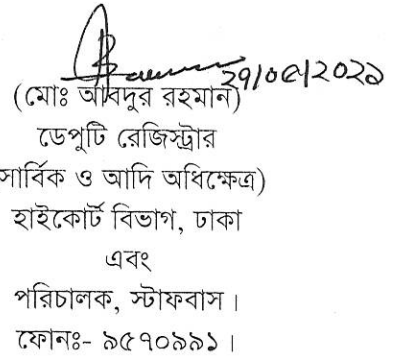 ২৭/০৫/২০২১
(মোঃ আবদুর রহমান)
ডেপুটি রেজিস্ট্রার
সার্বিক ও আদি অধিক্ষেত্র)
হাইকোর্ট বিভাগ, ঢাকা
এবং
পরিচালক, স্টাফবাস।
ফোনঃ- ৯৫৭০৯৯১।